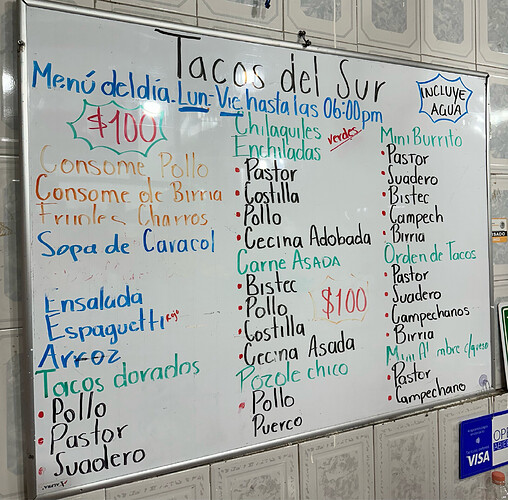 Tacos del Sur
Menú del día. Lun-Vie hasta las 06:00pm
INCLUYE
AGUA
$100
Consome Pollo
Consome de Birria
Frijoles Charros
Sopa de Caracol
Ensalada
Espaguetti Rojo
Arroz
Tacos dorados
• Pollo
• Pastor
• Suadero
Chilaquiles
Enchiladas verdes
• Pastor
• Costilla
• Pollo
• Cecina Adobada
Carne ASADA
• Bistec
• Pollo
• Costilla
• Cecina Asada
$100
Pozole chico
• Pollo
Puerco
Mini Burrito
• Pastor
• Suadero
• Bistec
• Campech
• Birria
Orden de Tacos
• Pastor
• Suadero
• Campechanos
• Birria
Mini Al mbre c/queso
• Pastor
• Campechano
VISA